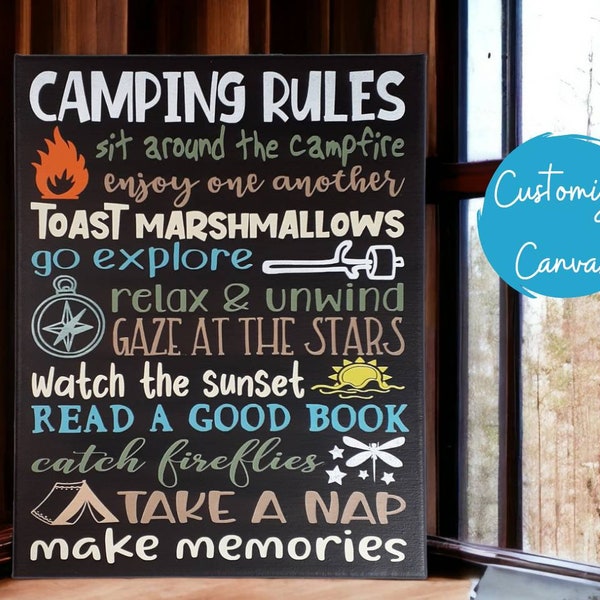 CAMPING RULES
sit around the campfire
enjoy one another
TOAST MARSHMALLOWS
go explore
relax & unwind
GAZE AT THE STARS
watch the sunset
READ A GOOD BOOK
catch fireflies
TAKE A NAP
make memories